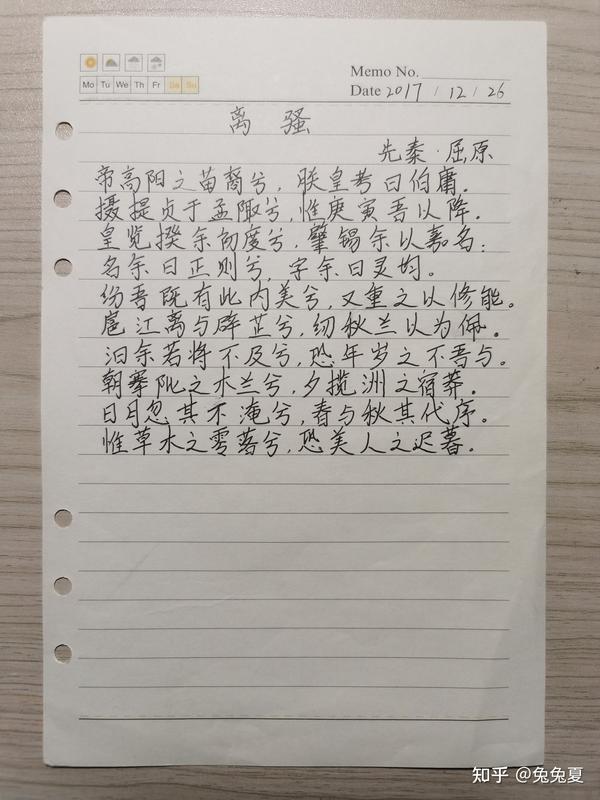 Mo Tu We Th Fr Sa Su
Memo No.
Date 2017 / 12 / 26
离 骚
先秦·屈原
帝高阳之苗裔兮，朕皇考曰伯庸。
摄提贞于孟陬兮，惟庚寅吾以降。
皇览揆余初度兮，肇锡余以嘉名：
名余曰正则兮，字余曰灵均。
纷吾既有此内美兮，又重之以修能。
扈江离与辟芷兮，纫秋兰以为佩。
汩余若将不及兮，恐年岁之不吾与。
朝搴阰之木兰兮，夕揽洲之宿莽。
日月忽其不淹兮，春与秋其代序。
惟草木之零落兮，恐美人之迟暮。
知乎 @兔兔夏